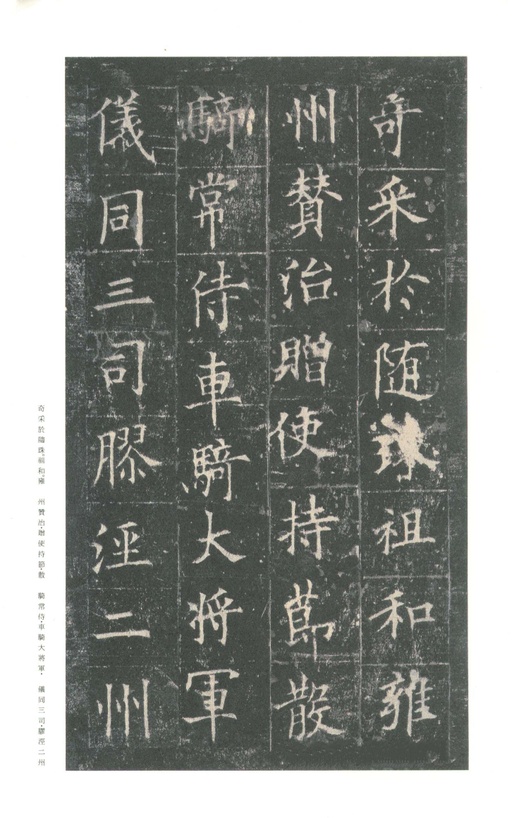 奇采於随珠祖和雍
州賛治贈使持節散
騎常侍車騎大将軍
儀同三司膠涇二州
奇采於隨珠。祖和雍 州贊治。贈使持節。散 騎常侍。車騎大將軍。 儀同三司。膠涇二州